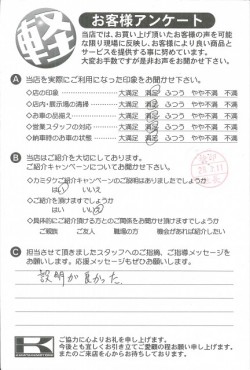 軽
お客様アンケート
当店では、お買い上げ頂いたお客様の声を可能
な限り現場に反映し、お客様により良い商品と
サービスを提供する事に努めています。
大変お手数ですが是非お声をお聞かせ下さい。
A 当店を実際にご利用になった印象をお聞かせ下さい。
◇店の印象 大満足 満足 ふつう やや不満 不満
◇店内・展示場の清掃 大満足 満足 ふつう やや不満 不満
◇お車の品揃え 大満足 満足 ふつう やや不満 不満
◇営業スタッフの対応 大満足 満足 ふつう やや不満 不満
◇納車時のお車の状態 大満足 満足 ふつう やや不満 不満
B 当店はご紹介を大切にしております。
ご紹介キャンペーンについてお聞かせ下さい。
◇カミタケご紹介キャンペーンのご説明はありましたでしょうか
はい いいえ
◇ご紹介を頂けますでしょうか
はい いいえ
◇具体的にご紹介頂ける方とのご関係をお聞かせ頂けますでしょうか
ご親族 ご友人 職場の方 機会があれば紹介したい
C 担当させて頂きましたスタッフへのご指摘、ご指導メッセージを
お願いします。応援メッセージもぜひお願いします。
説明が良かった
ご協力に心よりお礼を申し上げます。
今後とも宜しくお引き立てご愛顧の程お願い申し上げます。
またのご来店を心からお待ちしております。